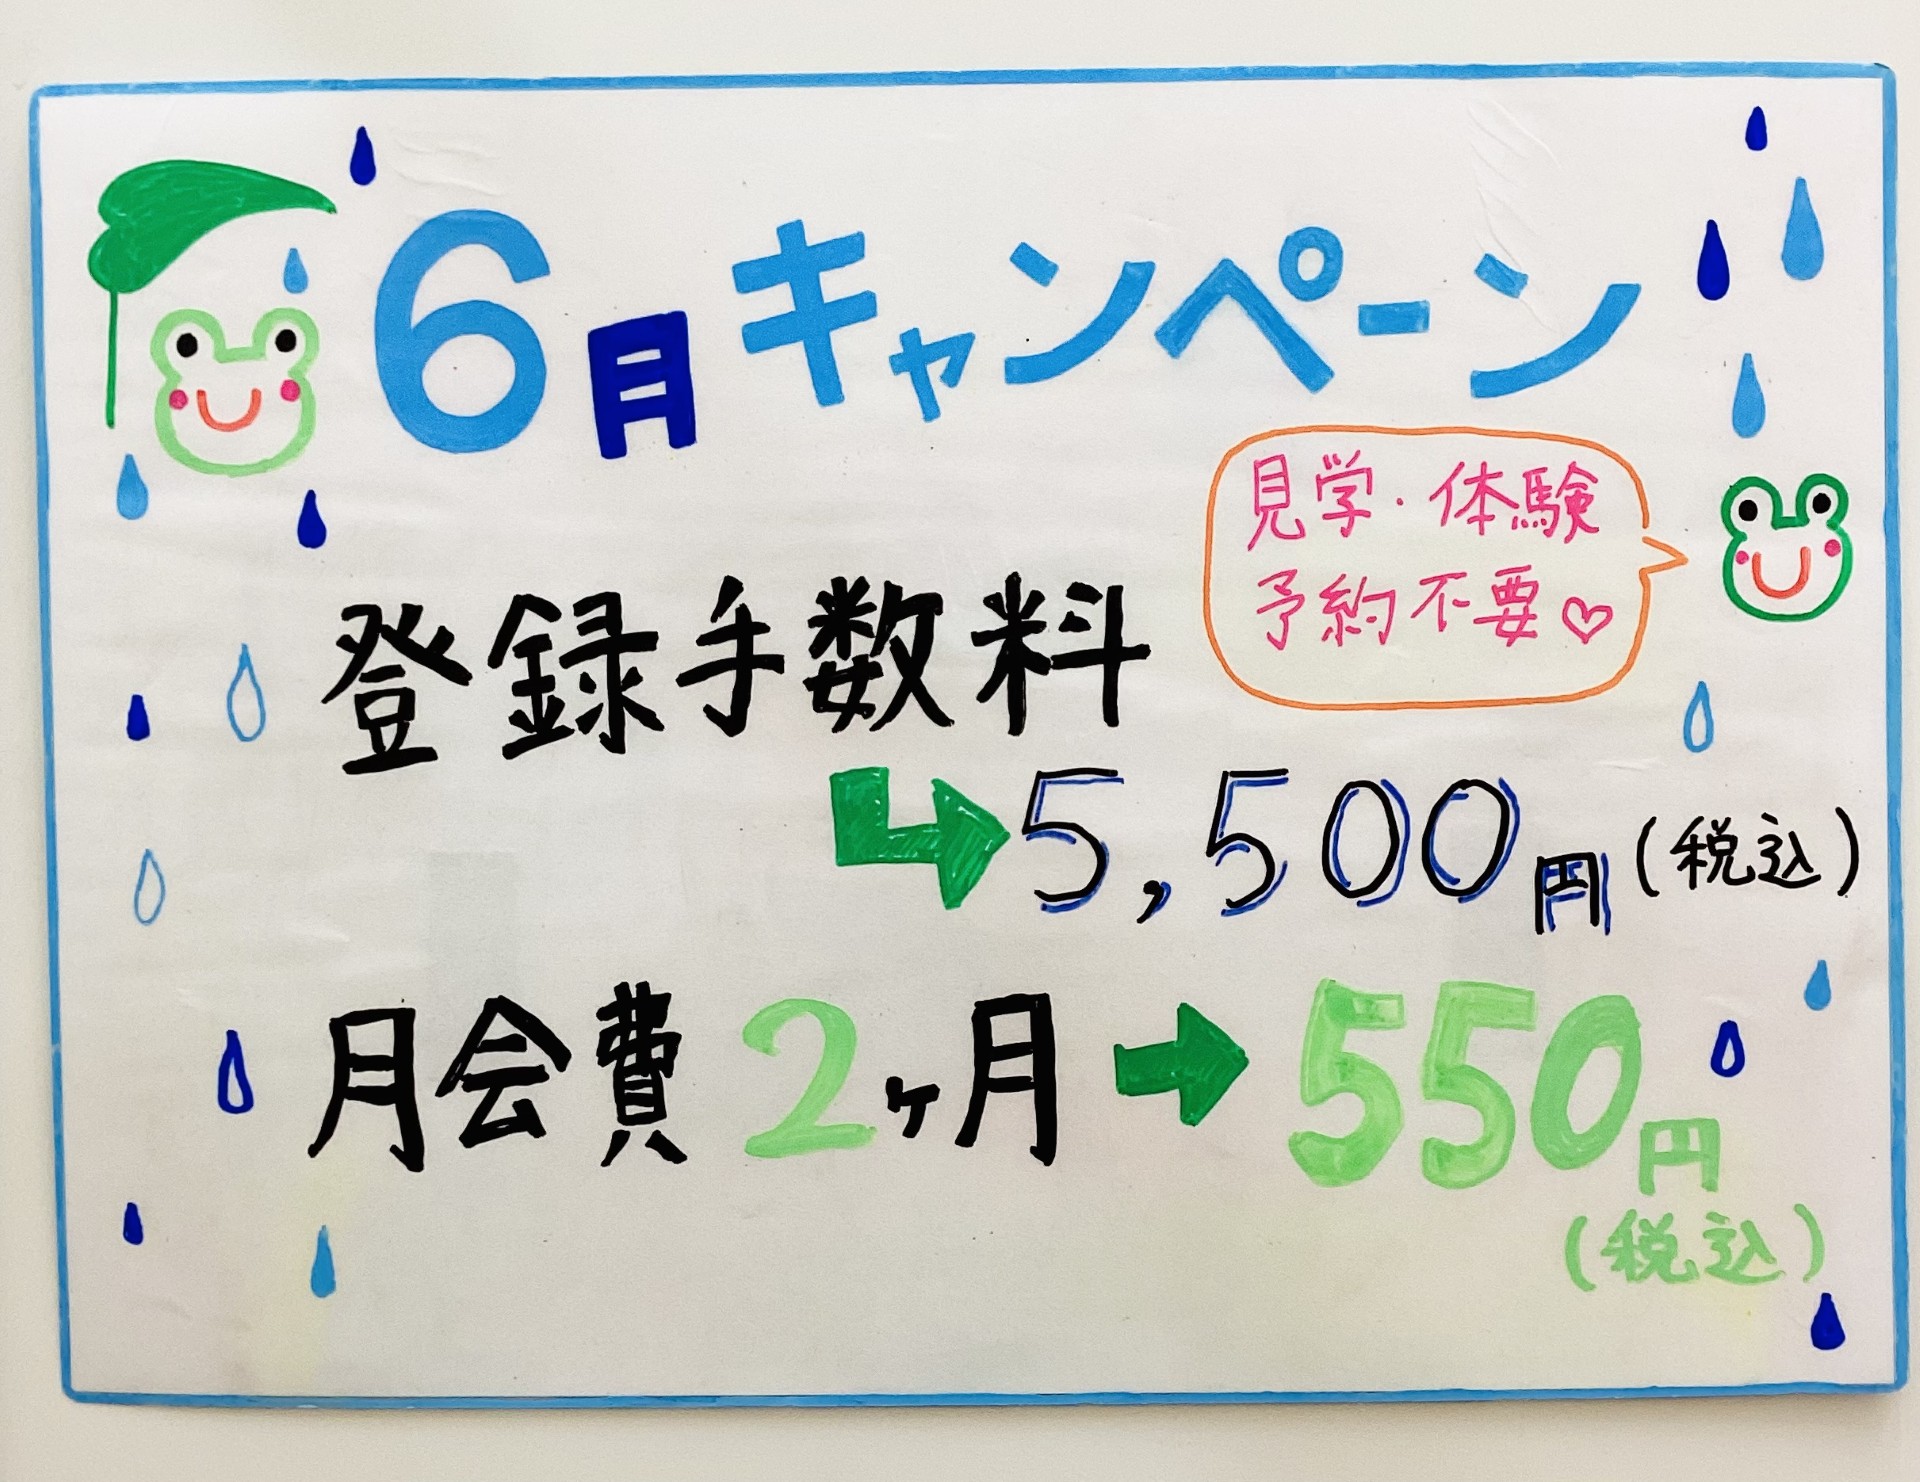 6月キャンペーン
見学・体験
予約不要♡
登録手数料
5,500円(税込)
月会費2ヶ月→550円
(税込)